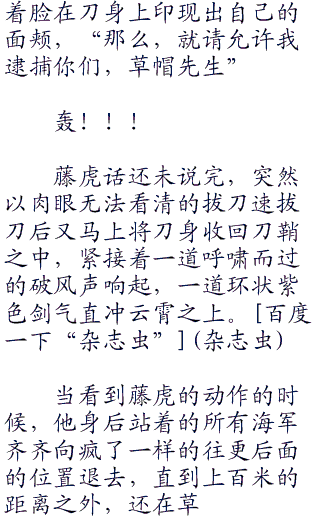 着脸在刀身上印现出自己的
面颊，“那么，就请允许我
逮捕你们，草帽先生”
轰！！！
藤虎话还未说完，突然
以肉眼无法看清的拔刀速拔
刀后又马上将刀身收回刀鞘
之中，紧接着一道呼啸而过
的破风声响起，一道环状紫
色剑气直冲云霄之上。[百度
一下“杂志虫”](杂志虫)
当看到藤虎的动作的时
候，他身后站着的所有海军
齐齐向疯了一样的往更后面
的位置退去，直到上百米的
距离之外，还在草